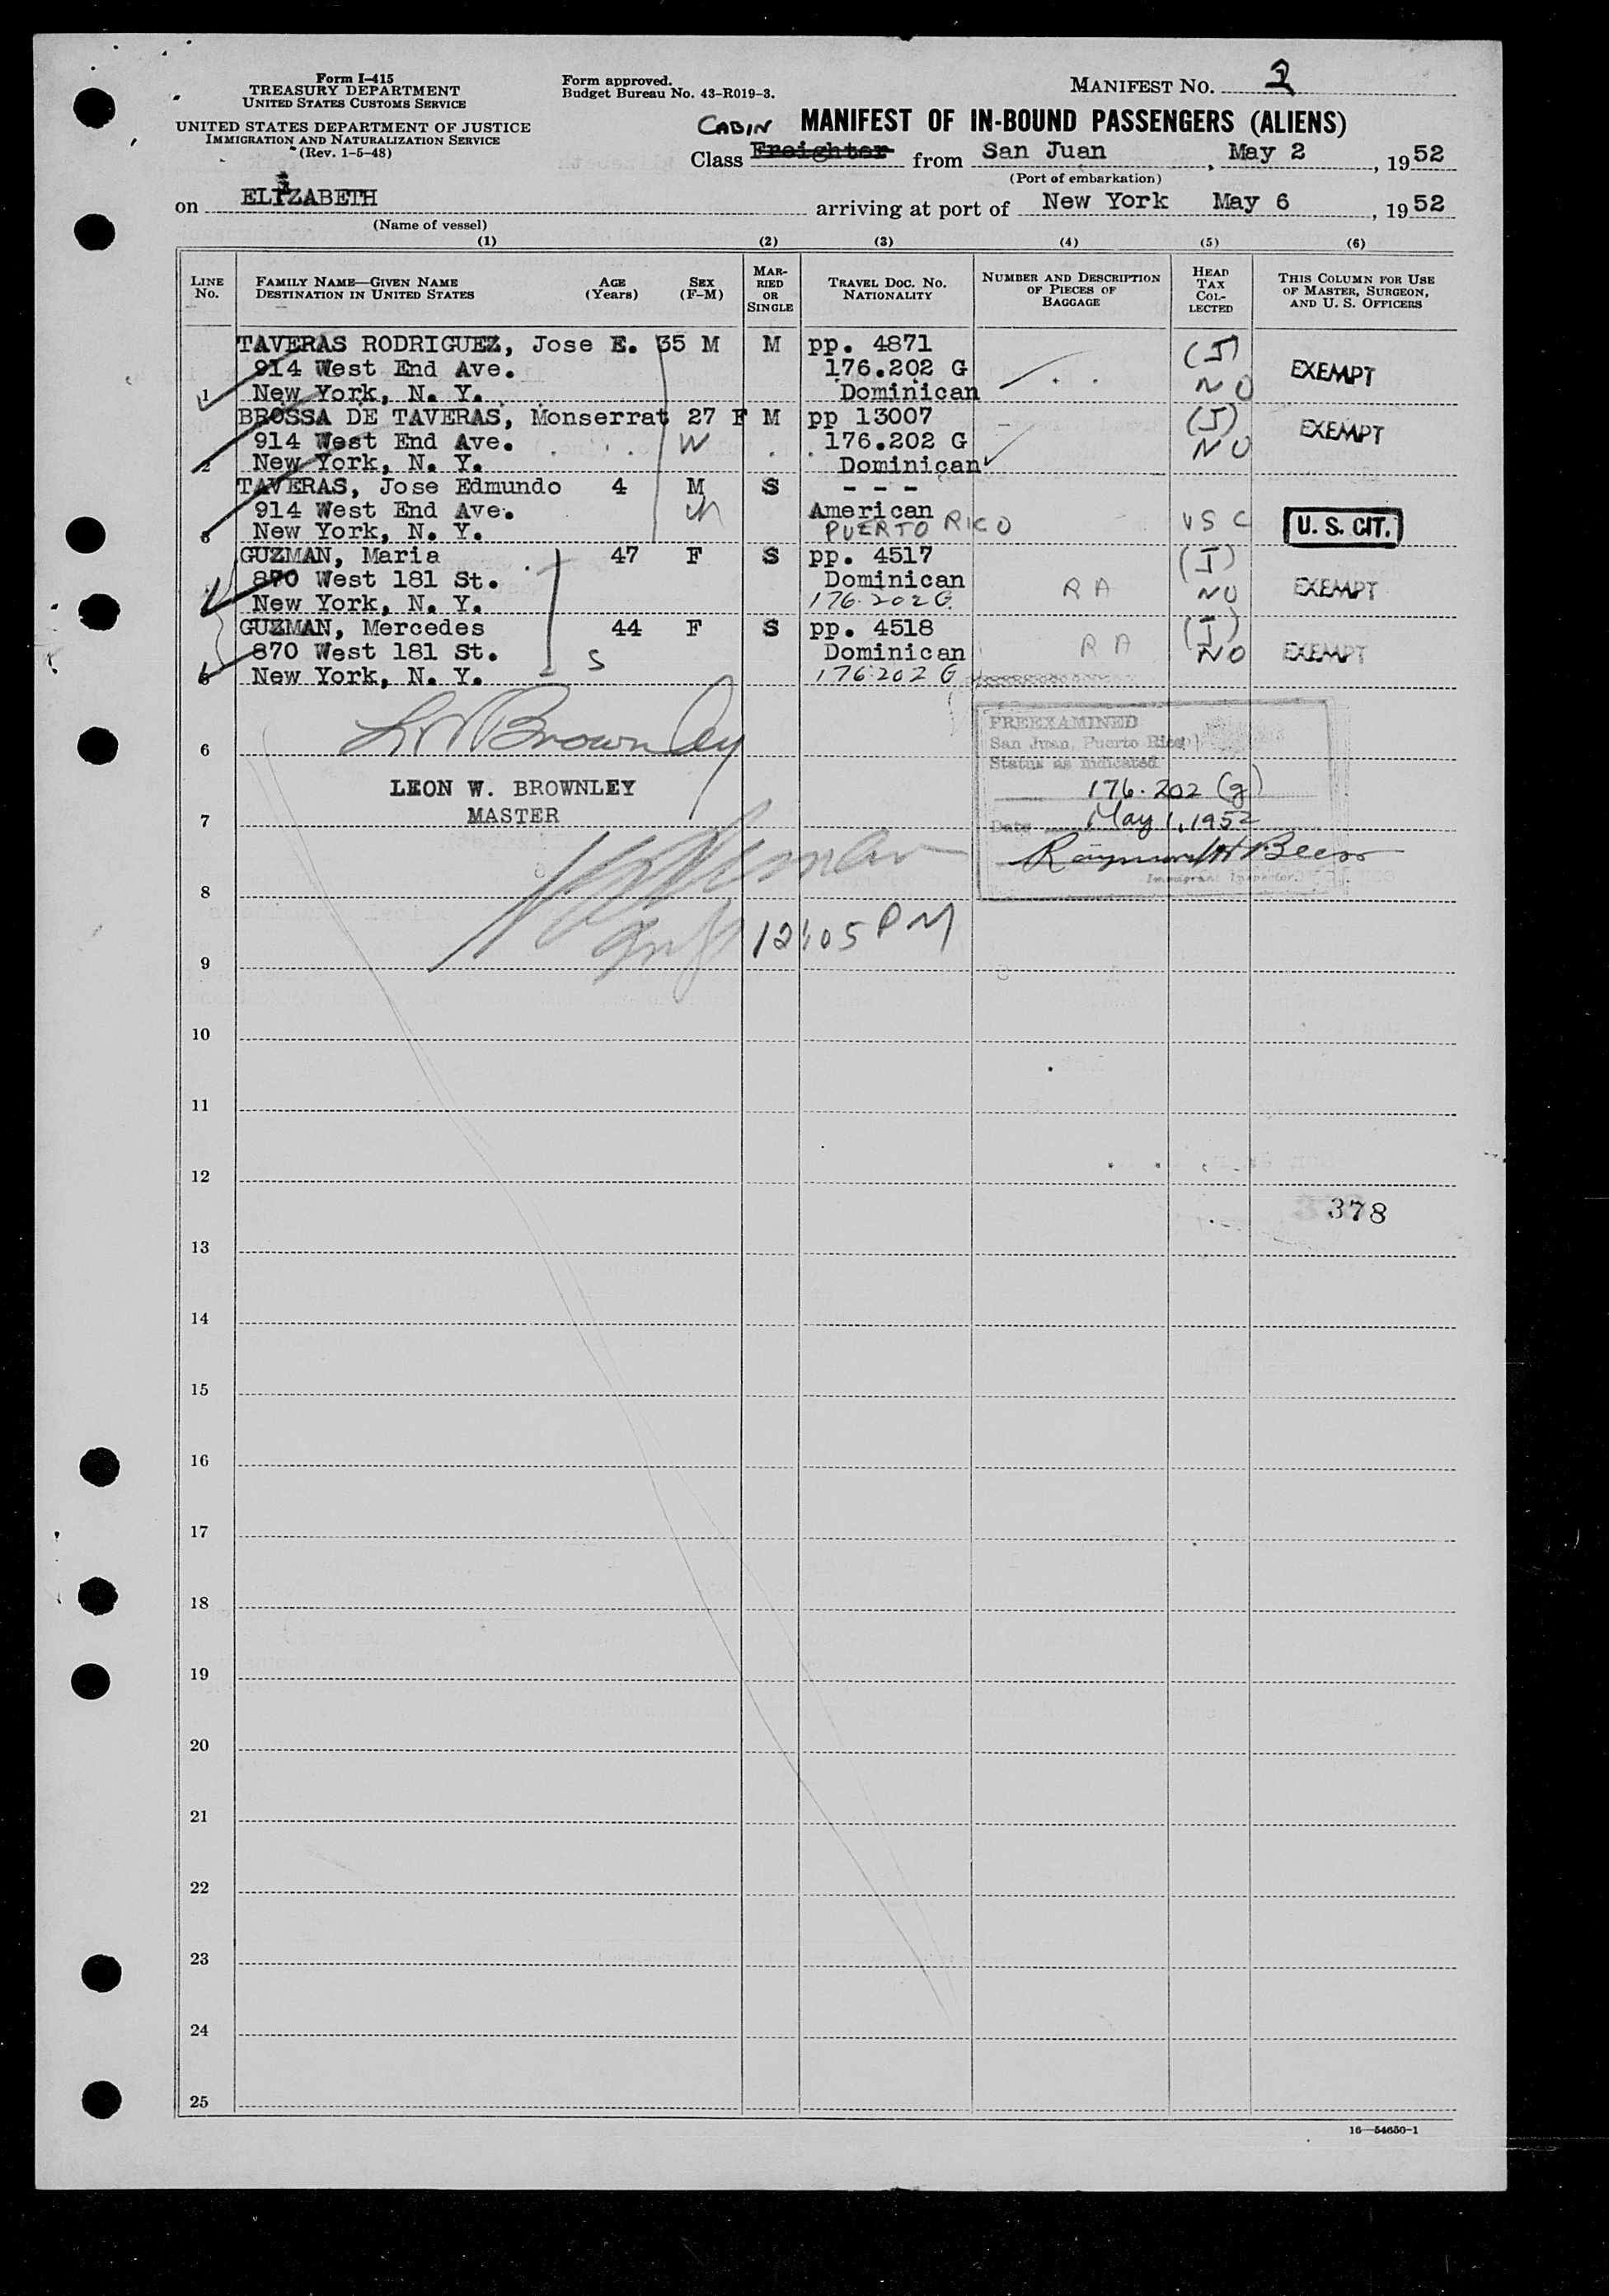 Form I-415
TREASURY DEPARTMENT
UNITED STATES CUSTOMS SERVICE
UNITED STATES DEPARTMENT OF JUSTICE
IMMIGRATION AND NATURALIZATION SERVICE
(Rev. 1-5-48)
Form approved.
Budget Bureau No. 43-R019-3.
MANIFEST NO. 2
MANIFEST OF IN-BOUND PASSENGERS (ALIENS)
CABIN
Class Freighter from San Juan, May 2, 1952
(Port of embarkation)
on ELIZABETH arriving at port of New York May 6, 1952
(Name of vessel)
(1) (2) (3) (4) (5) (6)
LINE No. FAMILY NAME—GIVEN NAME DESTINATION IN UNITED STATES AGE (Years) SEX (F-M) MARRIED OR SINGLE TRAVEL DOC. NO. NATIONALITY NUMBER AND DESCRIPTION OF PIECES OF BAGGAGE HEAD TAX COLLECTED THIS COLUMN FOR USE OF MASTER, SURGEON, AND U. S. OFFICERS
TAVERAS RODRIGUEZ, Jose E. 35 M M pp. 4871 (J)
914 West End Ave. 176.202 G EXEMPT
1 New York, N. Y. Dominican NO
BROSSA DE TAVERAS, Monserrat 27 F M pp 13007 (J) EXEMPT
914 West End Ave. W 176.202 G NO
2 New York, N. Y. Dominican
TAVERAS, Jose Edmundo 4 M S - - -
914 West End Ave. American USC U. S. CIT.
3 New York, N. Y. PUERTO RICO
GUZMAN, Maria 47 F S pp. 4517 (I)
870 West 181 St. Dominican RA NO EXEMPT
New York, N. Y. 176.202 G
GUZMAN, Mercedes 44 F S pp. 4518 (I)
870 West 181 St. S Dominican RA NO EXEMPT
5 New York, N. Y. 176.202 G
L W Brownley
PREEXAMINED
San Juan, Puerto Rico
Status as indicated
6
LEON W. BROWNLEY 176.202 (g)
MASTER
7 Date May 1, 1952
Raymond H Beers
Immigrant Inspector.
8
12:05 PM
9
10
11
12
378
13
14
15
16
17
18
19
20
21
22
23
24
25
16—54650-1